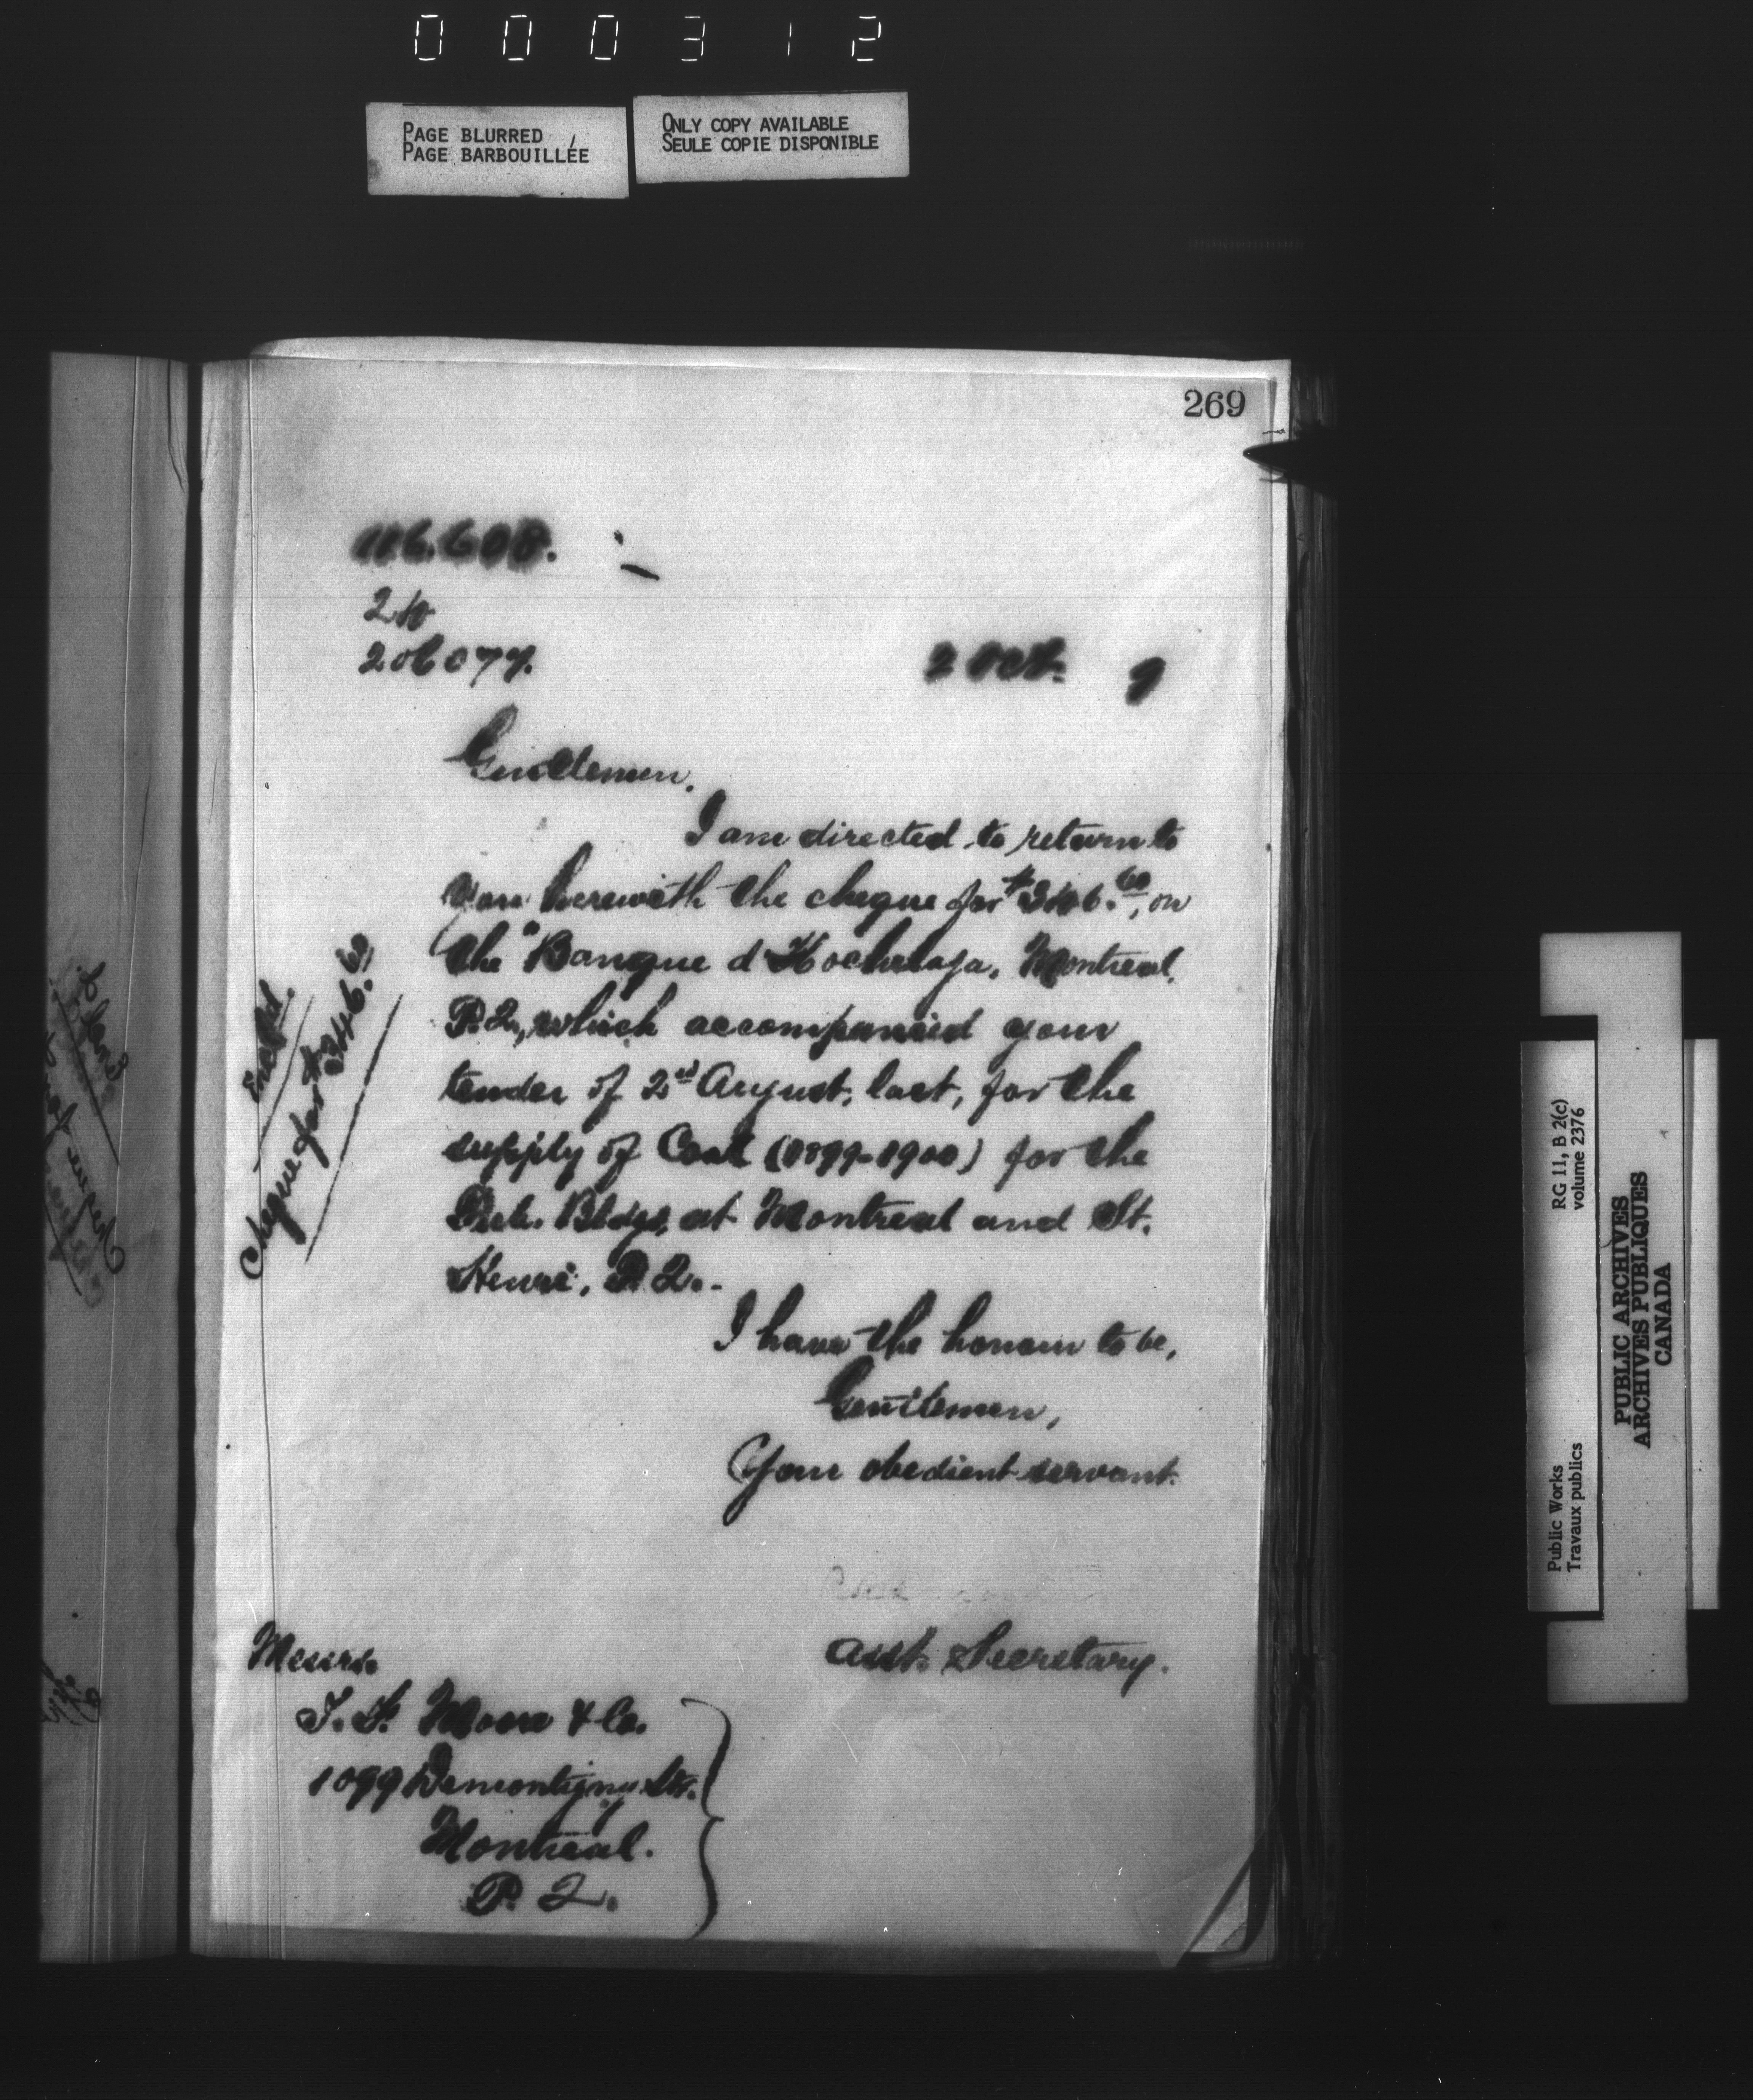 000312
PAGE BLURRED
PAGE BARBOUILLÉE
ONLY COPY AVAILABLE
SEULE COPIE DISPONIBLE
269
116.608.
206077.
2 Oct. 9
Gentlemen.
I am directed to return to
you herewith the cheque for $346.60, on
the "Banque d'Hochelaga, Montreal,
P.Q., which accompanied your
tender of 2nd August, last, for the
supply of Coal (1899-1900) for the
Bldgs, at Montreal and St.
Henri, P.Q..-
I have the honour to be,
Gentlemen,
Your obedient servant.
Asst. Secretary.
Messrs.
Moore & Co.
1099 Demontigny Str.
Montreal.
P.Q.
Encl'd.
Cheque for $346.60
Public Works
Travaux publics
RG 11, B 2(c)
volume 2376
PUBLIC ARCHIVES
ARCHIVES PUBLIQUES
CANADA